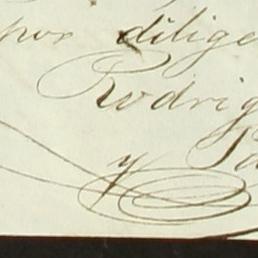 por dilige
Rodrig
y